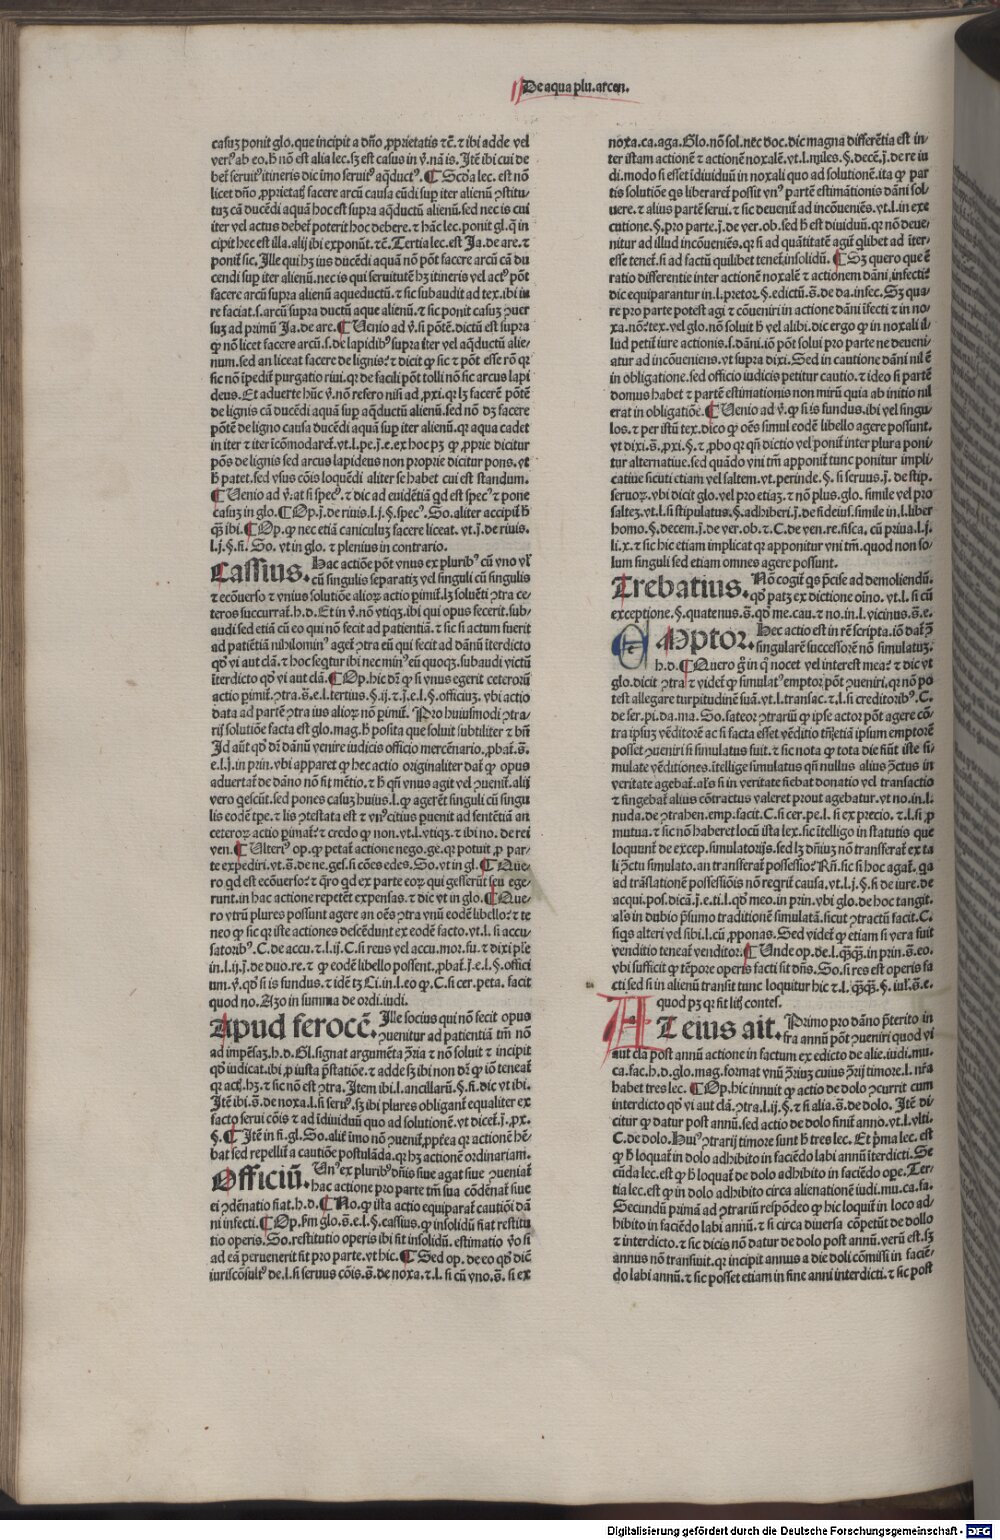 De aqua plu. arcen.
casuʒ ponit glo. que incipit a dño ꝓprietatis ⁊c̄. ⁊ ibi adde vel
versꝰ ab eo. h̄ nō est alia lec. sʒ est casus in ꝟ. nā is. Itē ibi cui de
bet̄ seruitꝰ itineris dic imo seruitꝰ aq̄ductꝰ. ¶ Scd̄a lec. est nō
licet dño ꝓprietatʒ facere arcū causa eūdi suꝑ iter alienū ꝯstitu⸗
tuʒ cā ducēdi aquā hoc est supra aq̄ductū alienū. sed nec is cui
iter vel actus debet̄ poterit hoc debere. ⁊ hāc lec. ponit gl. q̄ in
cipit hec est illa. alij ibi exponūt. ⁊c̄. Tertia lec. est Ja. de are. ⁊
ponit̄ sic. Ille qui hʒ ius ducēdi aquā nō pōt facere arcū cā du
cendi suꝑ iter alienū. nec is qui seruitutē hʒ itineris vel actꝰ pōt
facere arcū supra alienū aqueductū. ⁊ sic subaudit ad tex. ibi in
re faciat. s. arcū supra ductū aque alienū. ⁊ sic ponit casuʒ ꝟer
suʒ ad primū Ja. de are. ¶ Uenio ad ꝟ. si pōtē. dictū est supra
ꝙ nō licet facere arcū. s. de lapidibꝰ supra iter vel aq̄ductū alie⸗
num. sed an liceat facere de lignis? ⁊ dicit ꝙ sic ⁊ pōt esse rō qꝛ
sic nō īpedit̄ purgatio riui. qꝛ de facili pōt tolli nō sic arcus lapi
deus. Et aduerte hūc ꝟ. nō refero nisi ad ꝓxi. qꝛ lʒ facere pōtē
de lignis cā ducēdi aquā suꝑ aq̄ductū alienū. sed nō dʒ facere
pōtē de ligno causa ducēdi aquā suꝑ iter alienū. qꝛ aqua cadet
in iter ⁊ iter īcōmodaret̄. vt. l. pe. j. e. ex hoc pʒ ꝙ ꝓprie dicitur
pōs de lignis sed arcus lapideus non proprie dicitur pons. vt
h̄ patet. sed vsus cōis loquēdi aliter se habet cui est standum.
¶ Uenio ad ꝟ. at si specꝰ. ⁊ dic ad euidētiā qd est specꝰ ⁊ pone
casuʒ in glo. ¶ Op. j. de riuis. l. j. §. specꝰ. So. aliter accipit̄ h̄
qʒ̄ ibi. ¶ Op. ꝙ nec etiā caniculuʒ facere liceat. vt. j. de riuis.
l. j. §. fi. So. vt in glo. ⁊ plenius in contrario.
Cassius. Hac actiōe pōt vnus ex pluribꝰ cū vno vl̓
cū singulis separatiʒ vel singuli cū singulis
⁊ ecōuerso ⁊ vnius solutiōe alioꝝ actio ꝑimit̄. lʒ soluēti ꝯtra ce⸗
teros succurrat̄. h. d. Et in ꝟ. nō vtiqʒ. ibi qui opus fecerit. sub⸗
audi sed etiā cū eo qui nō fecit ad patientiā. ⁊ sic si actum fuerit
ad patiētiā nihilominꝰ aget̄ ꝯtra eū qui fecit ad dānū īterdicto
qd̓ vi aut clā. ⁊ hoc seqtur ibi nec minꝰ eū quoqʒ. subaudi victū
īterdicto qd̓ vi aut clā. ¶ Op. hic dn̄ ꝙ si vnus egerit ceterorū
actio ꝑimit̄. ꝯtra. s̄. e. l. tertius. §. ij. ⁊. j. e. l. §. officiuʒ. vbi actio
data ad partē ꝯtra ius alioꝝ nō ꝑimit̄. Pro huiusmodi ꝯtra⸗
rij solutiōe facta est glo. mag. h̄ posita que soluit subtiliter ⁊ bn̄
Id aūt qd̓ dr̄ dānū venire iudicis officio mercēnario. ꝓbat̄. s̄.
e. l. j. in prin. vbi apparet ꝙ hec actio originaliter dat̄ ꝙ opus
aduertat̄ de dāno nō fit mētio. ⁊ h̄ qn̄ vnus agit vel ꝯuenit̄. alij
vero q̄escūt. sed pones casuʒ huius. l. ꝙ agerēt singuli cū singu
lis eodē tp̄e. ⁊ lis ꝯtestata est ⁊ vnꝰ citius ꝑuenit ad sentētiā an
ceteroꝝ actio ꝑimat̄? ⁊ credo ꝙ non. vt. l. vtiqʒ. ⁊ ibi no. de rei
ven. ¶ Ulteriꝰ op. ꝙ petat̄ actione nego. ge. qꝛ potuit ꝓ par⸗
te expediri. vt. s̄. de ne. ges. si cōes edes. So. vt in gl. ¶ Que⸗
ro qd est ecōuerso? ⁊ q̄ro qd ex parte eoꝝ qui gesserūt seu ege⸗
runt. in hac actione repetēt expensas. ⁊ dic vt in glo. ¶ Que⸗
ro vtrū plures possunt agere an oēs ꝯtra vnū eodē libello? ⁊ te
neo ꝙ sic qꝛ iste actiones descēdunt ex eodē facto. vt. l. si accu⸗
satoribꝰ. C. de accu. ⁊. l. ij. C. si reus vel accu. mor. fu. ⁊ dixi ple
in. l. ij. j. de duo. re. ⁊ ꝙ eodē libello possent. ꝓbat̄. j. e. l. §. offici
um. ꝟ. qd̓ si is fundus. ⁊ idē tʒ Ci. in. l. eo ꝙ. C. si cer. peta. facit
quod no. Azo in summa de ordi. iudi.
Apud ferocē. Ille socius qui nō fecit opus
ꝯuenitur ad patientiā tm̄ nō
ad impēsaʒ. h. d. Gl. signat argumēta ꝯ̄ria ⁊ nō soluit ⁊ incipit
qd̓ iudicat. ibi. ꝓ iusta p̄statiōe. ⁊ adde sʒ ibi non dr̄ ꝙ iō teneat̄
qꝛ actʒ. hʒ. ⁊ sic nō est ꝯtra. Item ibi. l. ancillarū. §. fi. dic vt ibi.
Itē ibi. s̄. de noxa. l. si seruꝰ. sʒ ibi plures obligant̄ equaliter ex
facto serui cōis ⁊ ad īdiuiduū quo ad solutionē. vt dicet̄. j. ꝓx.
§. ¶ Itē in fi. gl. So. alit̄ imo nō ꝯuenit̄. ꝓpt̄ea qꝛ actionē hē⸗
bat sed repellit̄ a cautiōe postulāda. qꝛ hʒ actionē ordinariam.
Officiū. Unꝰ ex pluribꝰ dn̄is siue agat siue ꝯueniat̄
hac actione pro parte tm̄ sua cōdēnat̄ siue
ei ꝯdēnatio fiat. h. d. ¶ No. ꝙ ista actio equiparat̄ cautiōi dā
ni infecti. ¶ Op. ẜm glo. s̄. e. l. §. cassius. ꝙ insolidū fiat restitu
tio operis. So. restitutio operis ibi fit insolidū. estimatio ꝟo si
ad eā peruenerit fit pro parte. vt hic. ¶ Sed op. de eo qd̓ dic̄
iurisconsultꝰ de. l. si seruus cōis. s̄. de noxa. ⁊. l. si cū vno. s̄. si ex
noxa. ca. aga. Glo. nō sol. nec doc. dic magna differētia est in⸗
ter istam actionē ⁊ actionē noxalē. vt. l. miles. §. decē. j. de re iu
di. modo si esset īdiuiduū in noxali quo ad solutionē. ita ꝙ par
tis solutiōe qs liberaret̄ possit vnꝰ partē estimātionis dāni sol⸗
uere. ⁊ alius partē serui. ⁊ sic deueniet̄ ad incōueniēs. vt. l. in exe
cutione. §. pro parte. j. de ver. ob. sed h̄ est diuiduū. qꝛ nō deue⸗
nitur ad illud incōueniēs. qꝛ si ad quātitatē agit̄ qlibet ad īter⸗
esse tenet̄. si ad factū quilibet tenet̄ insolidū. ¶ Sʒ quero que ē
ratio differentie inter actionē noxalē ⁊ actionem dāni infecti?
dic equiparantur in. l. pretor. §. edictū. s̄. de da. infec. Sʒ qua⸗
re pro parte potest agi ⁊ cōueniri in actione dāni īfecti ⁊ in no⸗
xa. nō? tex. vel glo. nō soluit h̄ vel alibi. dic ergo ꝙ in noxali il⸗
lud petit̄ iure actionis. s. dāni. iō pōt solui pro parte ne deueni⸗
atur ad incōueniens. vt supra dixi. Sed in cautione dāni nil ē
in obligatione. sed officio iudicis petitur cautio. ⁊ ideo si partē
domus habet ⁊ partē estimationis non mirū quia ab initio nil
erat in obligatiōe. ¶ Uenio ad ꝟ. ꝙ si is fundus. ibi vel singu⸗
los. ⁊ per istū tex. dico ꝙ oēs simul eodē libello agere possunt.
vt dixi. s̄. ꝓxi. §. ⁊ ꝓbo qꝛ qn̄ dictio vel ponit̄ inter plura poni⸗
tur alternatiue. sed quādo vni tm̄ apponit̄ tunc ponitur impli⸗
catiue sicuti etiam vel saltem. vt. perinde. §. si seruus. j. de stip.
seruoꝝ. vbi dicit glo. vel pro etiaʒ. ⁊ nō plus. glo. simile vel pro
salteʒ. vt. l. si stipulatus. §. adhiberi. j. de fideius. simile in. l. liber
homo. §. decem. j. de ver. ob. ⁊ C. de ven. re. fisca. cū priua. l. j.
li. x. ⁊ sic hic etiam implicat qꝛ apponitur vni tm̄. quod non so⸗
lum singuli sed etiam omnes agere possunt.
Trebatius. Nō cogit̄ qs p̄cise ad demoliendū.
qd̓ patʒ ex dictione oīno. vt. l. si cū
exceptione. §. quatenus. s̄. qd̓ me. cau. ⁊ no. in. l. vicinus. s̄. e.
EMptor. Hec actio est in rē scripta. iō dat̄ ꝯ̄
singularē successorē nō simulatuʒ.
h. d. ¶ Quero gr̄ in q̄ nocet vel interest mea? ⁊ dic vt
glo. dicit ꝯtra ⁊ videt̄ ꝙ simulatꝰ emptor pōt ꝯueniri. qꝛ nō po
test allegare turpitudinē suā. vt. l. transac. ⁊. l. si creditoribꝰ. C.
de ser. pi. da. ma. So. fateor ꝯtrariū ꝙ ipse actor pōt agere cō⸗
tra ipsuʒ vēditorē ac si facta esset vēditio tn̄ etiā ipsum emptorē
posset ꝯueniri si simulatus fuit. ⁊ sic nota ꝙ tota die fiūt iste si⸗
mulate vēditiones. ītellige simulatus qn̄ nullus alius ꝯ̄ctus in
veritate agebat̄. als̄ si in veritate fiebat donatio vel transactio
⁊ fingebat̄ alius cōtractus valeret prout agebatur. vt no. in. l.
nuda. de ꝯtrahen. emp. facit. C. si cer. pe. l. si ex precio. ⁊. l. si ꝓ
mutua. ⁊ sic nō haberet locū ista lex. sic ītelligo in statutis que
loquunt̄ de excep. simulatorijs. sed lʒ dn̄iuʒ nō transferat̄ ex ta
li ꝯ̄ctu simulato. an transferat̄ possessio? Rn̄. sic si hoc agat̄. qa
ad trāslationē possessiōis nō req̄rit̄ causa. vt. l. j. §. si de iure. de
acqui. pos. dicā. j. e. ti. l. qd̓ meo. in prin. vbi glo. de hoc tangit.
als̄ in dubio p̄sumo traditionē simulatā. sicut ꝯtractū facit. C.
si qs alteri vel sibi. l. cū ꝓponas. Sed videt̄ ꝙ etiam si vera fuit
venditio teneat̄ venditor. ¶ Unde op. de. l. qʒqʒ. in prin. s̄. eo.
vbi sufficit ꝙ tēpore operis facti sit dn̄s. So. si res est operis fa
cti sed si in alienū transit tunc loquitur hic ⁊. l. qʒqʒ. §. iul̓. s̄. e.
quod pʒ qꝛ fit litʒ contes.
ATeius ait. Primo pro dāno p̄terito in
fra annū pōt ꝯueniri quod vi
aut clā post annū actione in factum ex edicto de alie. iudi. mu.
ca. fac. h. d. glo. mag. format vnū ꝯ̄rium cuius ꝯ̄rij timore. l. nr̄a
habet tres lec. ¶ Op. hic innuit ꝙ actio de dolo ꝯcurrit cum
interdicto qd̓ vi aut clā. ꝯtra. l. ij. §. ⁊ si alia. s̄. de dolo. Itē di⸗
citur ꝙ datur post annū. sed actio de dolo finit̄ anno. vt. l. vlti.
C. de dolo. Huiꝰ ꝯtrarij timore sunt h̄ tres lec. Et p̄ma lec. est
ꝙ h̄ loquat̄ in dolo adhibito in faciēdo labi annū īterdicti. Se
cūda lec. est ꝙ h̄ loquat̄ de dolo adhibito in faciēdo oꝑe. Ter⸗
tia lec. est ꝙ in dolo adhibito circa alienationē iudi. mu. ca. fa.
Secundū primā ad ꝯtrariū respōdeo ꝙ hic loquit̄ in loco ad⸗
hibito in faciēdo labi annū. ⁊ si circa diuersa cōpetūt de dollo
⁊ interdicto. ⁊ sic dicis nō datur de dolo post annū. verū est. sʒ
annus nō transiuit. qꝛ incipit annus a die doli cōmissi in faciē⸗
do labi annū. ⁊ sic posset etiam in fine anni interdicti. ⁊ sic post
Digitalisierung gefördert durch die Deutsche Forschungsgemeinschaft - DFG